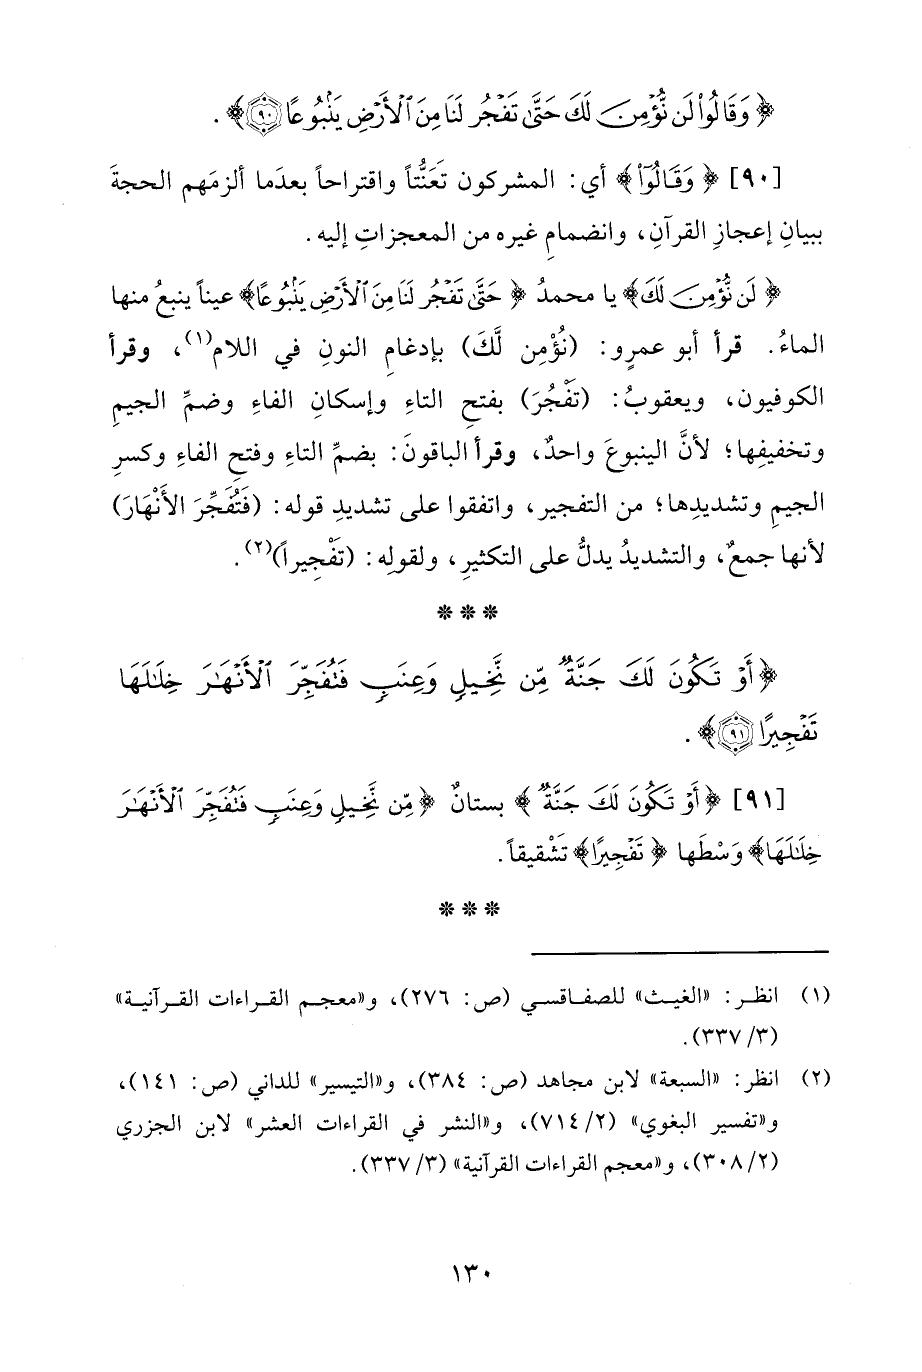 ﴿ وَقَالُوا۟ لَن نُّؤْمِنَ لَكَ حَتَّىٰ تَفْجُرَ لَنَا مِنَ ٱلْأَرْضِ يَنۢبُوعًا ۝٩٠﴾ .
[٩٠] ﴿ وَقَالُوٓا۟ ﴾ أي: المشركون تَعَنُّتاً واقتراحاً بعدَما ألزمَهم الحجةَ
ببيانِ إعجازِ القرآنِ، وانضمامِ غيرِه من المعجزاتِ إليه.
﴿ لَن نُّؤْمِنَ لَكَ﴾ يا محمدُ ﴿ حَتَّىٰ تَفْجُرَ لَنَا مِنَ ٱلْأَرْضِ يَنۢبُوعًا﴾ عيناً ينبعُ منها
الماءُ. قرأ أبو عمرٍو: (نُؤْمِن لَّكَ) بإدغامِ النونِ في اللام(١)، وقرأ
الكوفيون، ويعقوبُ: (تَفْجُرَ) بفتحِ التاءِ وإسكانِ الفاءِ وضمِّ الجيمِ
وتخفيفِها؛ لأنَّ الينبوعَ واحدٌ، وقرأ الباقونَ: بضمِّ التاءِ وفتحِ الفاءِ وكسرِ
الجيمِ وتشديدِها؛ من التفجير، واتفقوا على تشديدِ قوله: (فَتُفَجِّرَ الأَنْهَارَ)
لأنها جمعٌ، والتشديدُ يدلُّ على التكثيرِ، ولقولِه: (تَفْجِيراً)(٢).
* * *
﴿أَوْ تَكُونَ لَكَ جَنَّةٌ مِّن نَّخِيلٍ وَعِنَبٍ فَتُفَجِّرَ ٱلْأَنْهَٰرَ خِلَٰلَهَا
تَفْجِيرًا ۝٩١﴾ .
[٩١] ﴿أَوْ تَكُونَ لَكَ جَنَّةٌ ﴾ بستانٌ ﴿ مِّن نَّخِيلٍ وَعِنَبٍ فَتُفَجِّرَ ٱلْأَنْهَٰرَ
خِلَٰلَهَا﴾ وَسْطَها ﴿ تَفْجِيرًا﴾ تَشْقيقاً.
* * *
(١) انظر: «الغيث» للصفاقسي (ص: ٢٧٦)، و«معجم القراءات القرآنية»
(٣/ ٣٣٧).
(٢) انظر: «السبعة» لابن مجاهد (ص: ٣٨٤)، و«التيسير» للداني (ص: ١٤١)،
و«تفسير البغوي» (٢/ ٧١٤)، و«النشر في القراءات العشر» لابن الجزري
(٢/ ٣٠٨)، و«معجم القراءات القرآنية» (٣/ ٣٣٧).
١٣٠